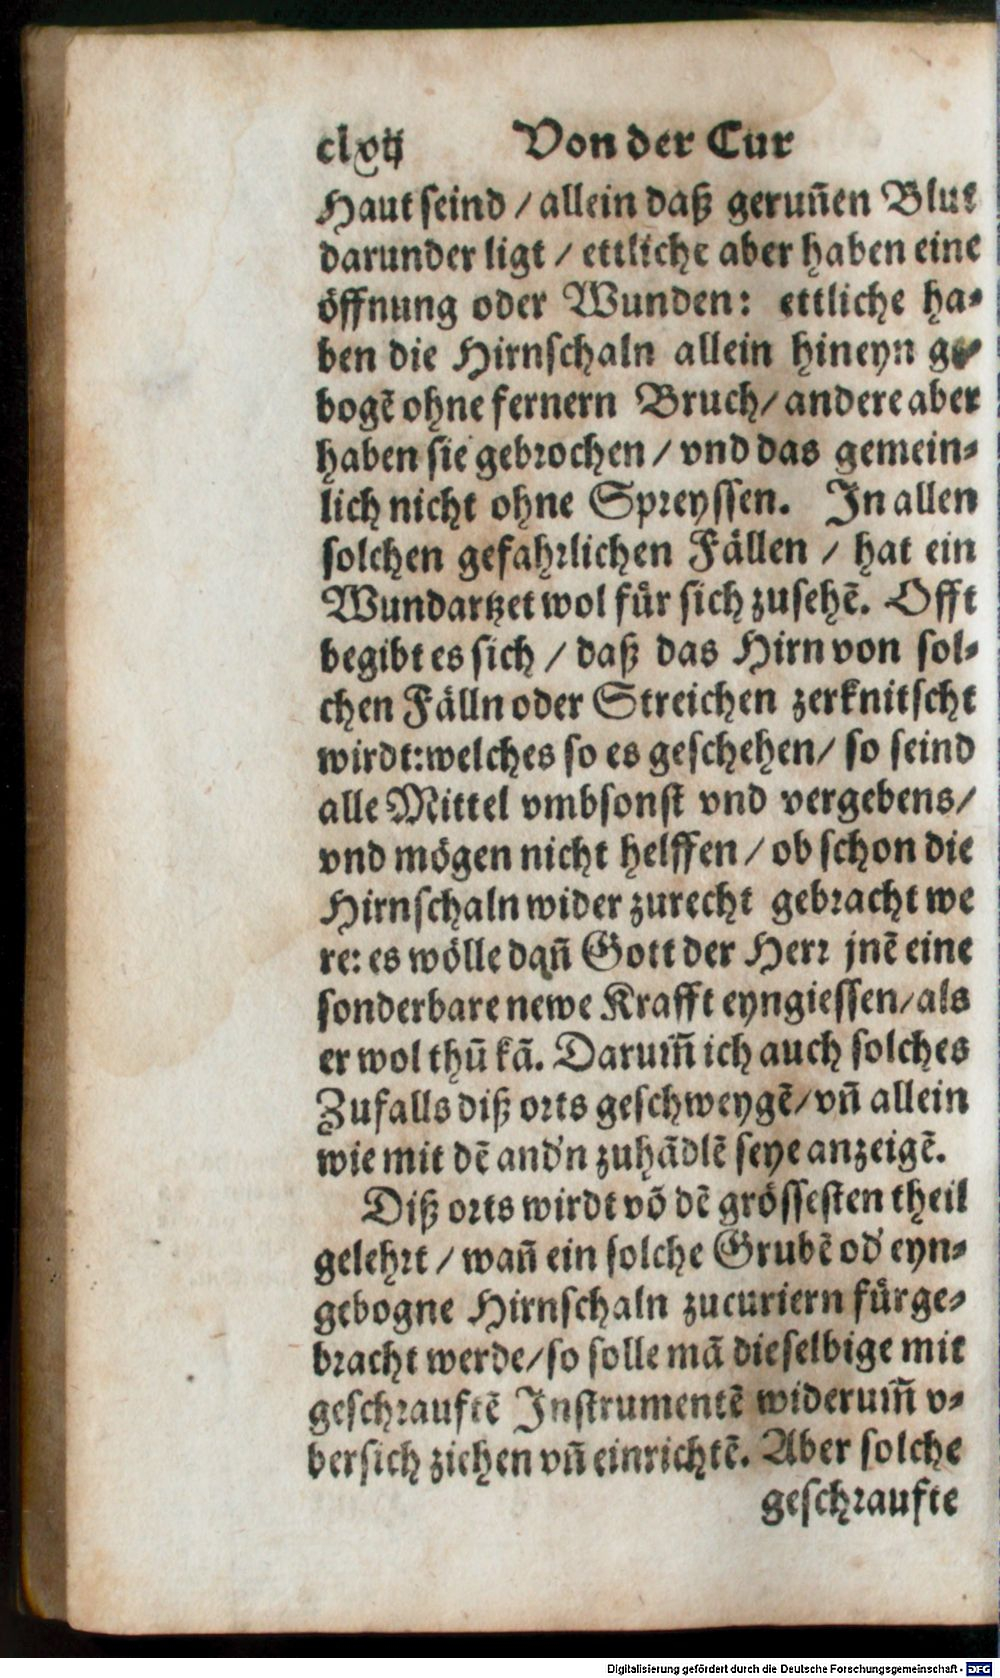 clxvij Von der Cur
Haut seind / allein daß geruñen Blut
darunder ligt / ettliche aber haben eine
öffnung oder Wunden: ettliche ha-
ben die Hirnschaln allein hineyn ge-
bogẽ ohne fernern Bruch / andere aber
haben sie gebrochen / vnd das gemein-
lich nicht ohne Spreyssen. In allen
solchen gefahrlichen Fällen / hat ein
Wundartzet wol für sich zusehẽ. Offt
begibt es sich / daß das Hirn von sol-
chen Fälln oder Streichen zerknitscht
wirdt: welches so es geschehen / so seind
alle Mittel vmbsonst vnd vergebens /
vnd mögen nicht helffen / ob schon die
Hirnschaln wider zurecht gebracht we
re: es wölle dañ Gott der Herr jnẽ eine
sonderbare newe Krafft eyngiessen / als
er wol thũ kã. Darum̃ ich auch solches
Zufalls diß orts geschweygẽ / vñ allein
wie mit dẽ and'n zuhãdlẽ seye anzeigẽ.
Diß orts wirdt võ dẽ grössesten theil
gelehrt / wañ ein solche Grubẽ od' eyn-
gebogne Hirnschaln zucuriern fürge-
bracht werde / so solle mã dieselbige mit
geschrauftẽ Instrumentẽ widerum̃ v-
bersich ziehen vñ einrichtẽ. Aber solche
geschraufte
Digitalisierung gefördert durch die Deutsche Forschungsgemeinschaft - DFG